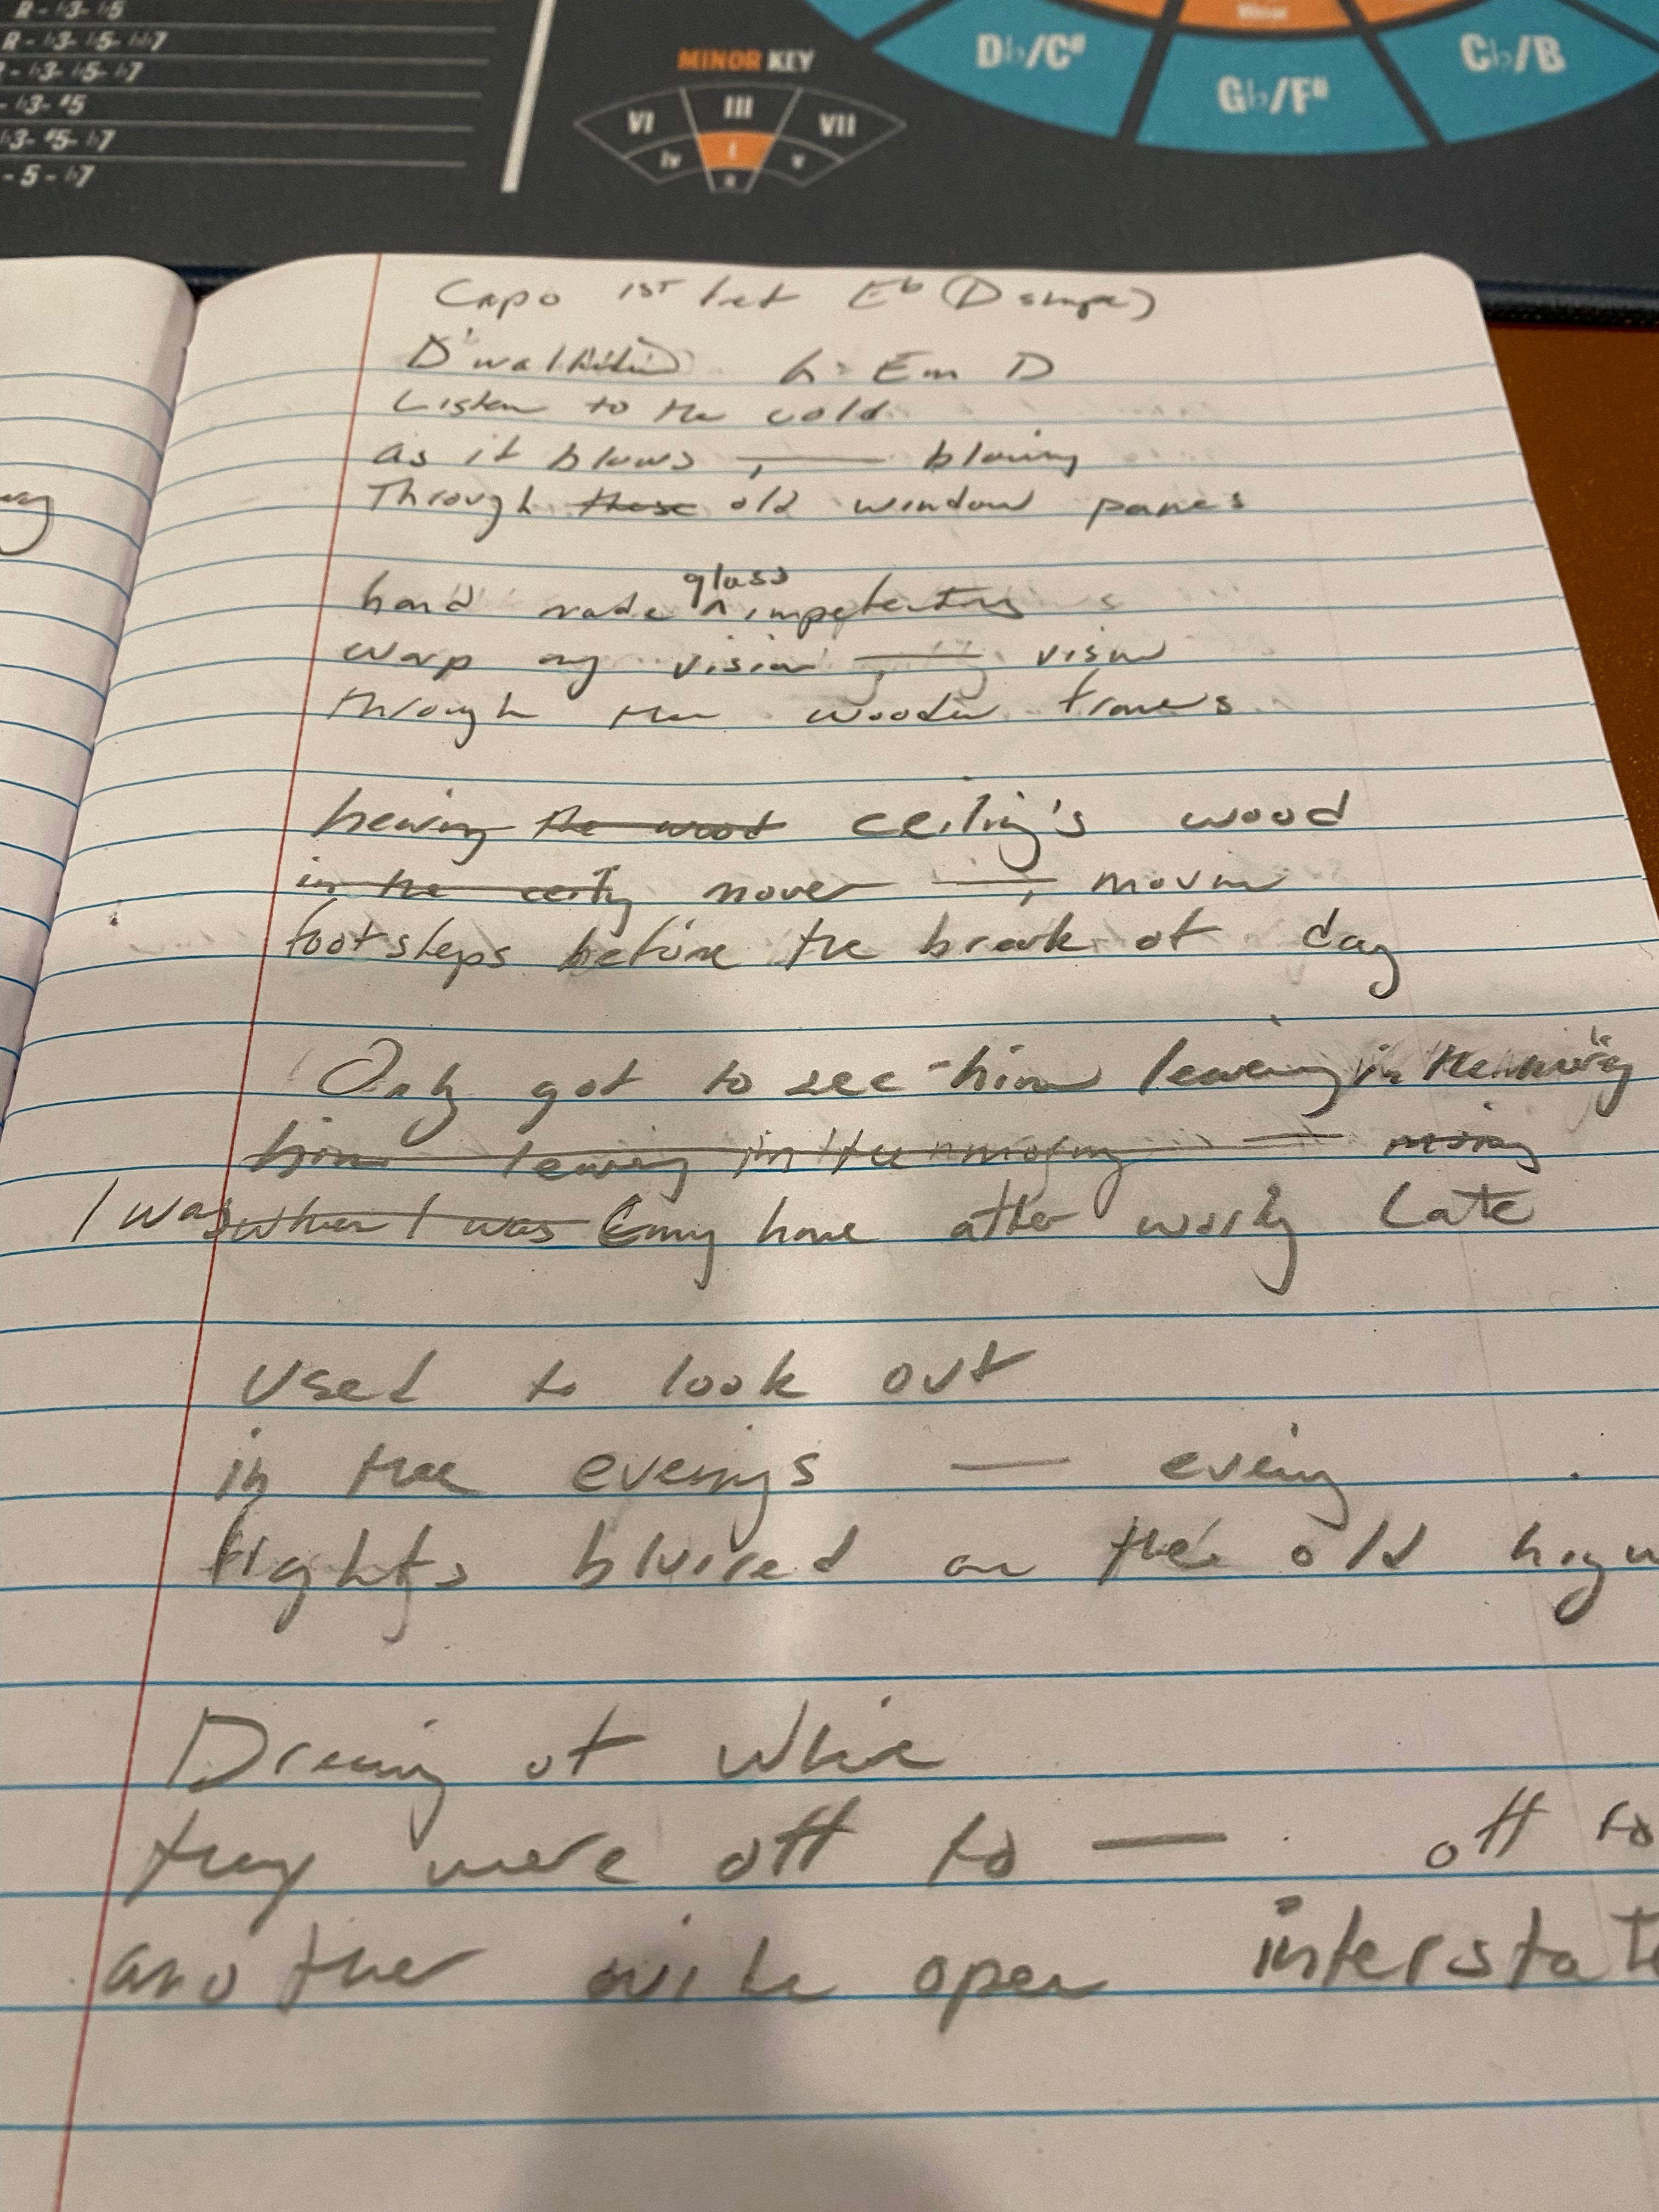 R - ♭3- ♭5
R - ♭3- ♭5- ♭♭7
- ♭3- ♭5- ♭7
- ♭3- #5
♭3- #5- ♭7
- 5 - ♭7
MINOR KEY
VI III VII
iv i v
ii
Minor
D♭/C# G♭/F# C♭/B
Capo 1st fret Eb (D shape)
D G Em D
Listen to the cold
as it blows , — blowing
Through these old window panes
glass
hand made ^
warp my vision — , vision
through the wooden frames
hearing the wood ceiling's wood
in the ceiling move — , movin
footsteps before the break of day
Only got to see him leaving in the morning
him leaving in the morning — morning
I was when I was coming home after working Late
Used to look out
in the evenings — evening
lights blurred on the old highw
Dreaming of where
they were off to — off to
another wide open interstate